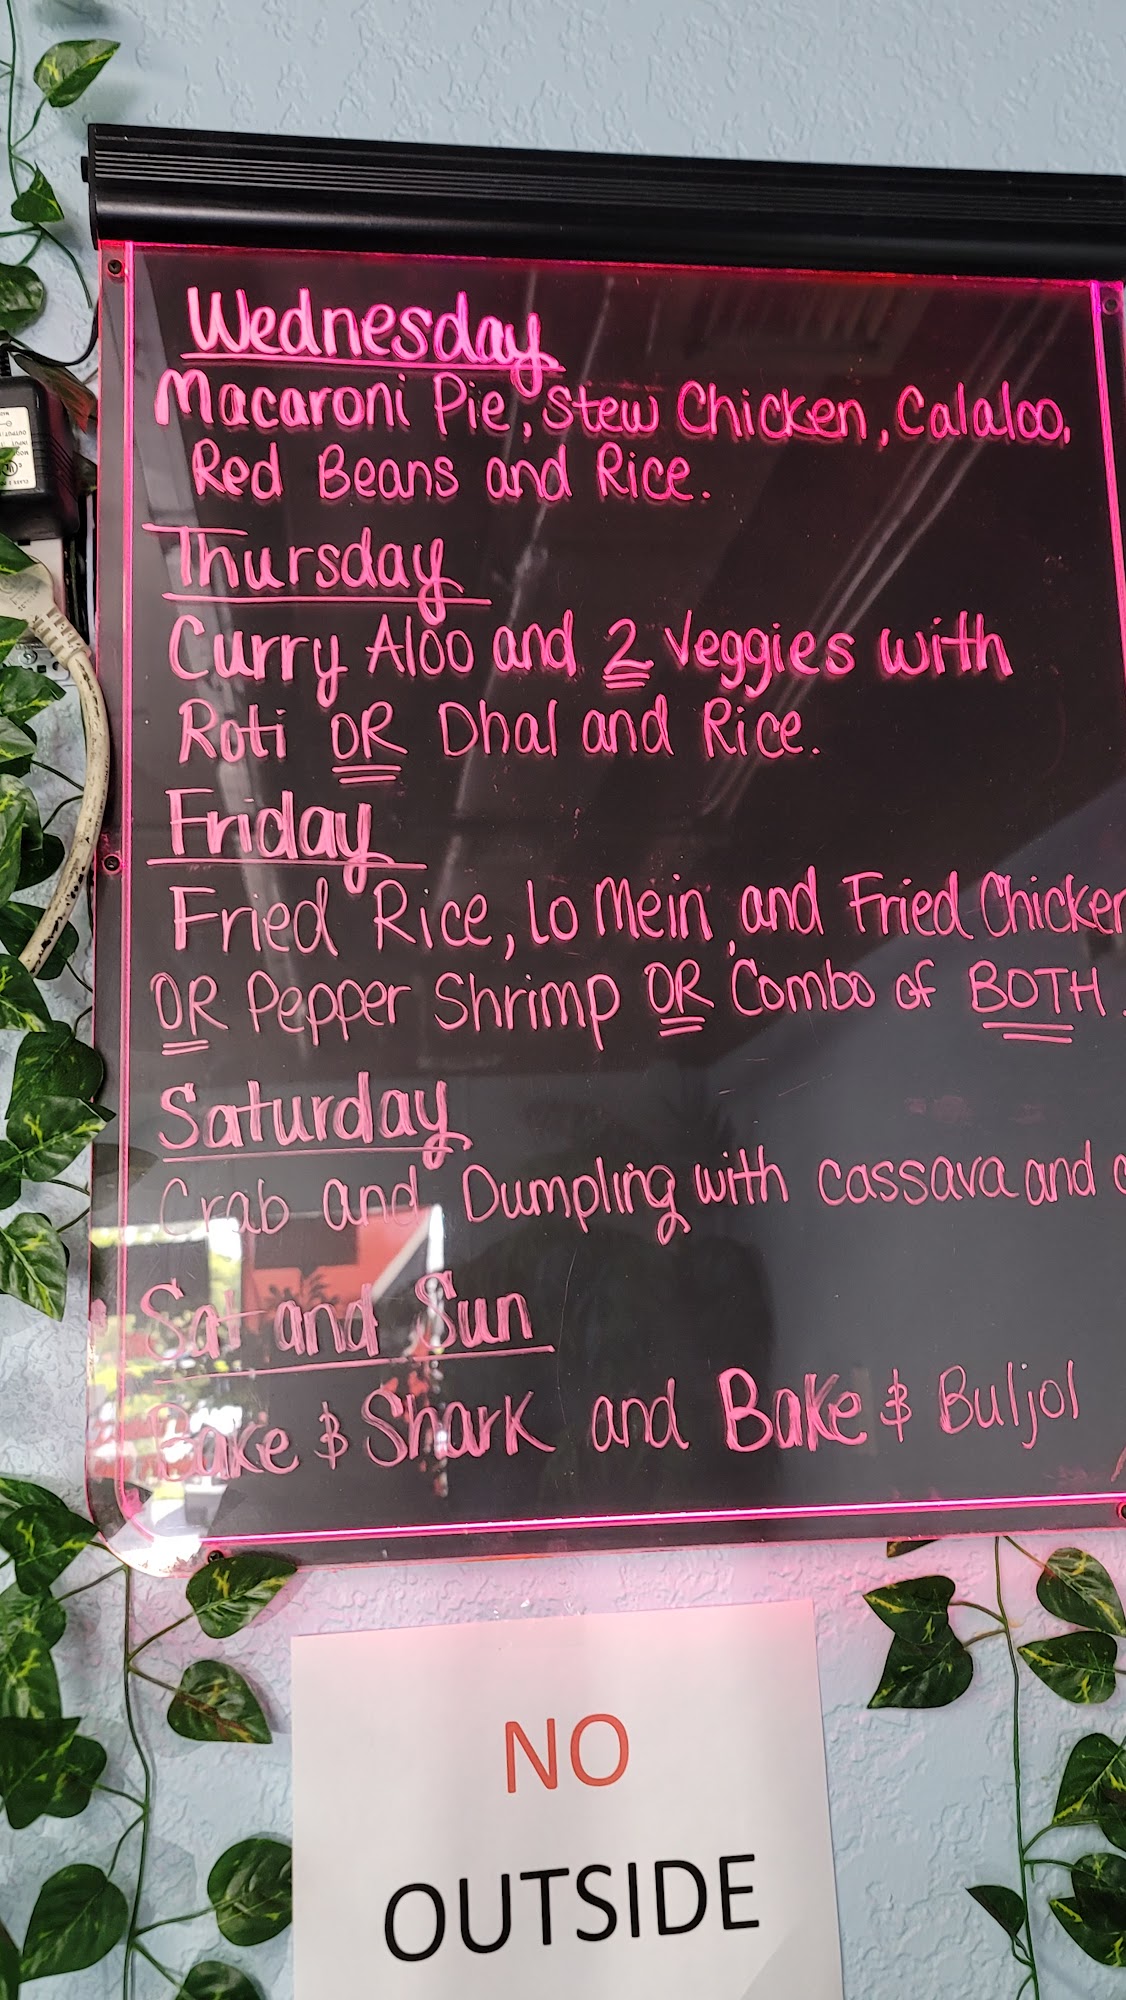 Wednesday
Macaroni Pie, Stew Chicken, Calaloo,
Red Beans and Rice.
Thursday
Curry Aloo and 2 Veggies with
Roti OR Dhal and Rice.
Friday
Fried Rice, Lo Mein, and Fried Chicken
OR Pepper Shrimp OR Combo of BOTH.
Saturday
Crab and Dumpling with cassava and
Sat and Sun
Bake & Shark and Bake & Buljol
NO
OUTSIDE